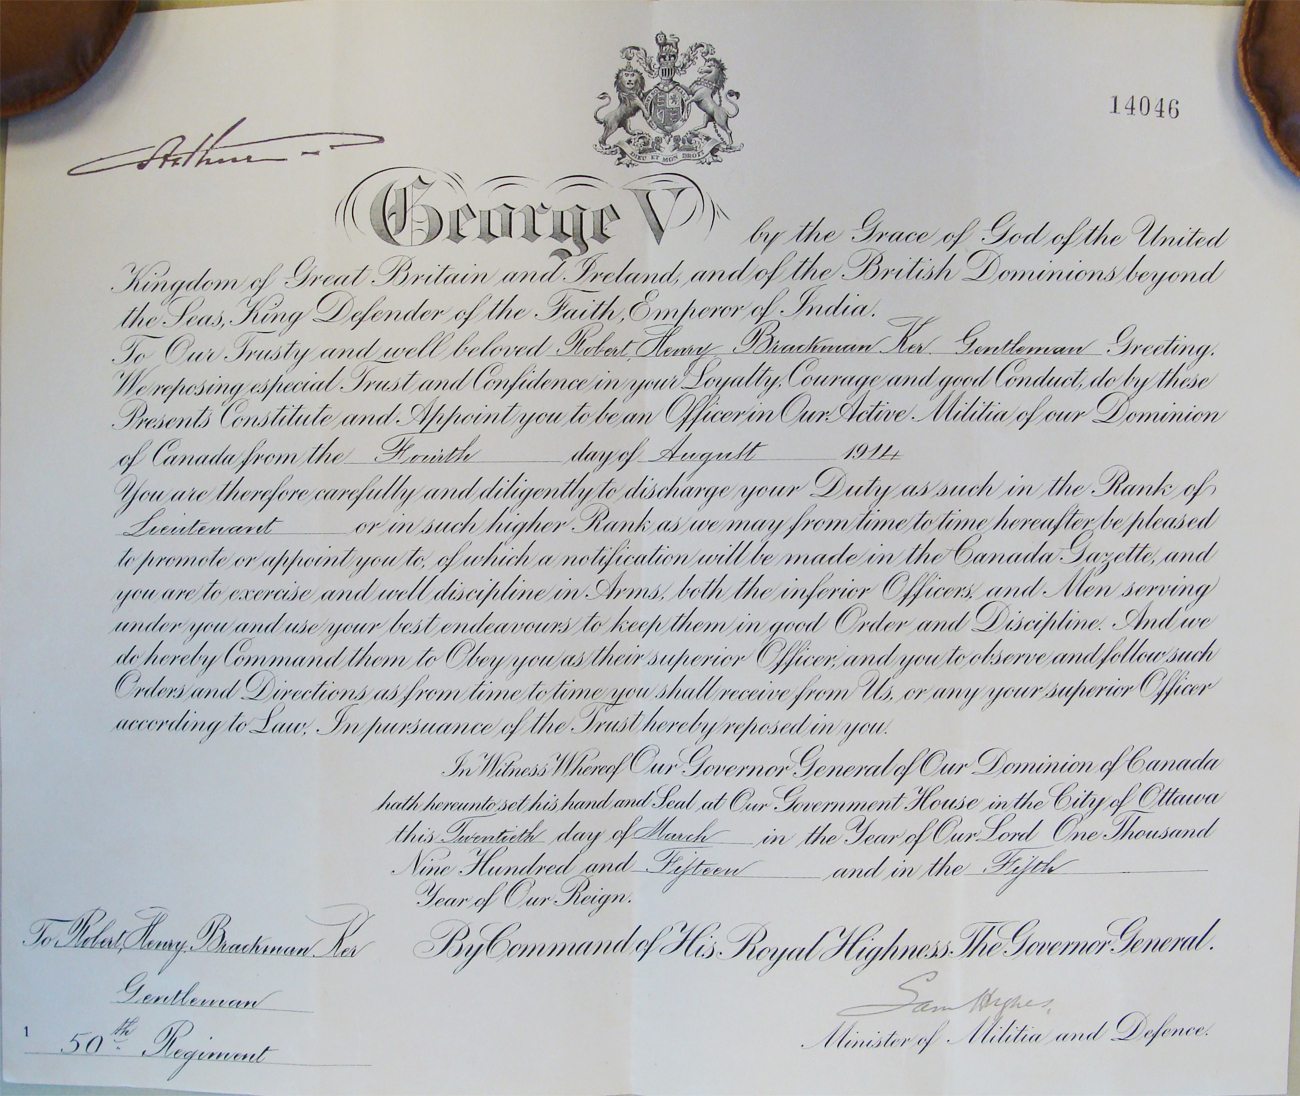 14046
Arthur
DIEU ET MON DROIT
George V by the Grace of God of the United
Kingdom of Great Britain and Ireland, and of the British Dominions beyond
the Seas, King Defender of the Faith, Emperor of India.
To Our Trusty and well beloved Robert Henry Brackman Ker Gentleman Greeting.
We reposing especial Trust and Confidence in your Loyalty, Courage and good Conduct, do by these
Presents Constitute and Appoint you to be an Officer in Our Active Militia of our Dominion
of Canada from the Fourth day of August 1914
You are therefore carefully and diligently to discharge your Duty as such in the Rank of
Lieutenant or in such higher Rank as we may from time to time hereafter be pleased
to promote or appoint you to, of which a notification will be made in the Canada Gazette, and
you are to exercise and well discipline in Arms, both the inferior Officers and Men serving
under you and use your best endeavours to keep them in good Order and Discipline. And we
do hereby Command them to Obey you as their superior Officer, and you to observe and follow such
Orders and Directions as from time to time you shall receive from Us, or any your superior Officer
according to Law. In pursuance of the Trust hereby reposed in you.
In Witness Whereof Our Governor General of Our Dominion of Canada
hath hereunto set his hand and Seal at Our Government House in the City of Ottawa
this Twentieth day of March in the Year of Our Lord One Thousand
Nine Hundred and Fifteen and in the Fifth
Year of Our Reign.
By Command of His Royal Highness The Governor General.
Sam Hughes,
Minister of Militia and Defence.
To Robert Henry Brackman Ker
Gentleman
1 50th Regiment